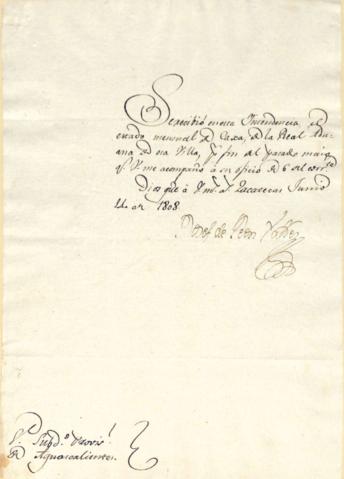 Se recibió en esta Intendencia, el
estado mensual de Caxa, de la Real Adu
ana de esa Villa, por fin del pasado mayo
q.e Vm. me acompaña en oficio de 6 del corr.te
Dios gue. á Vm. a.s Zacatecas Junio
de 1808.
de Peon Valdes
S.or Subd.o
de Aguascalientes.